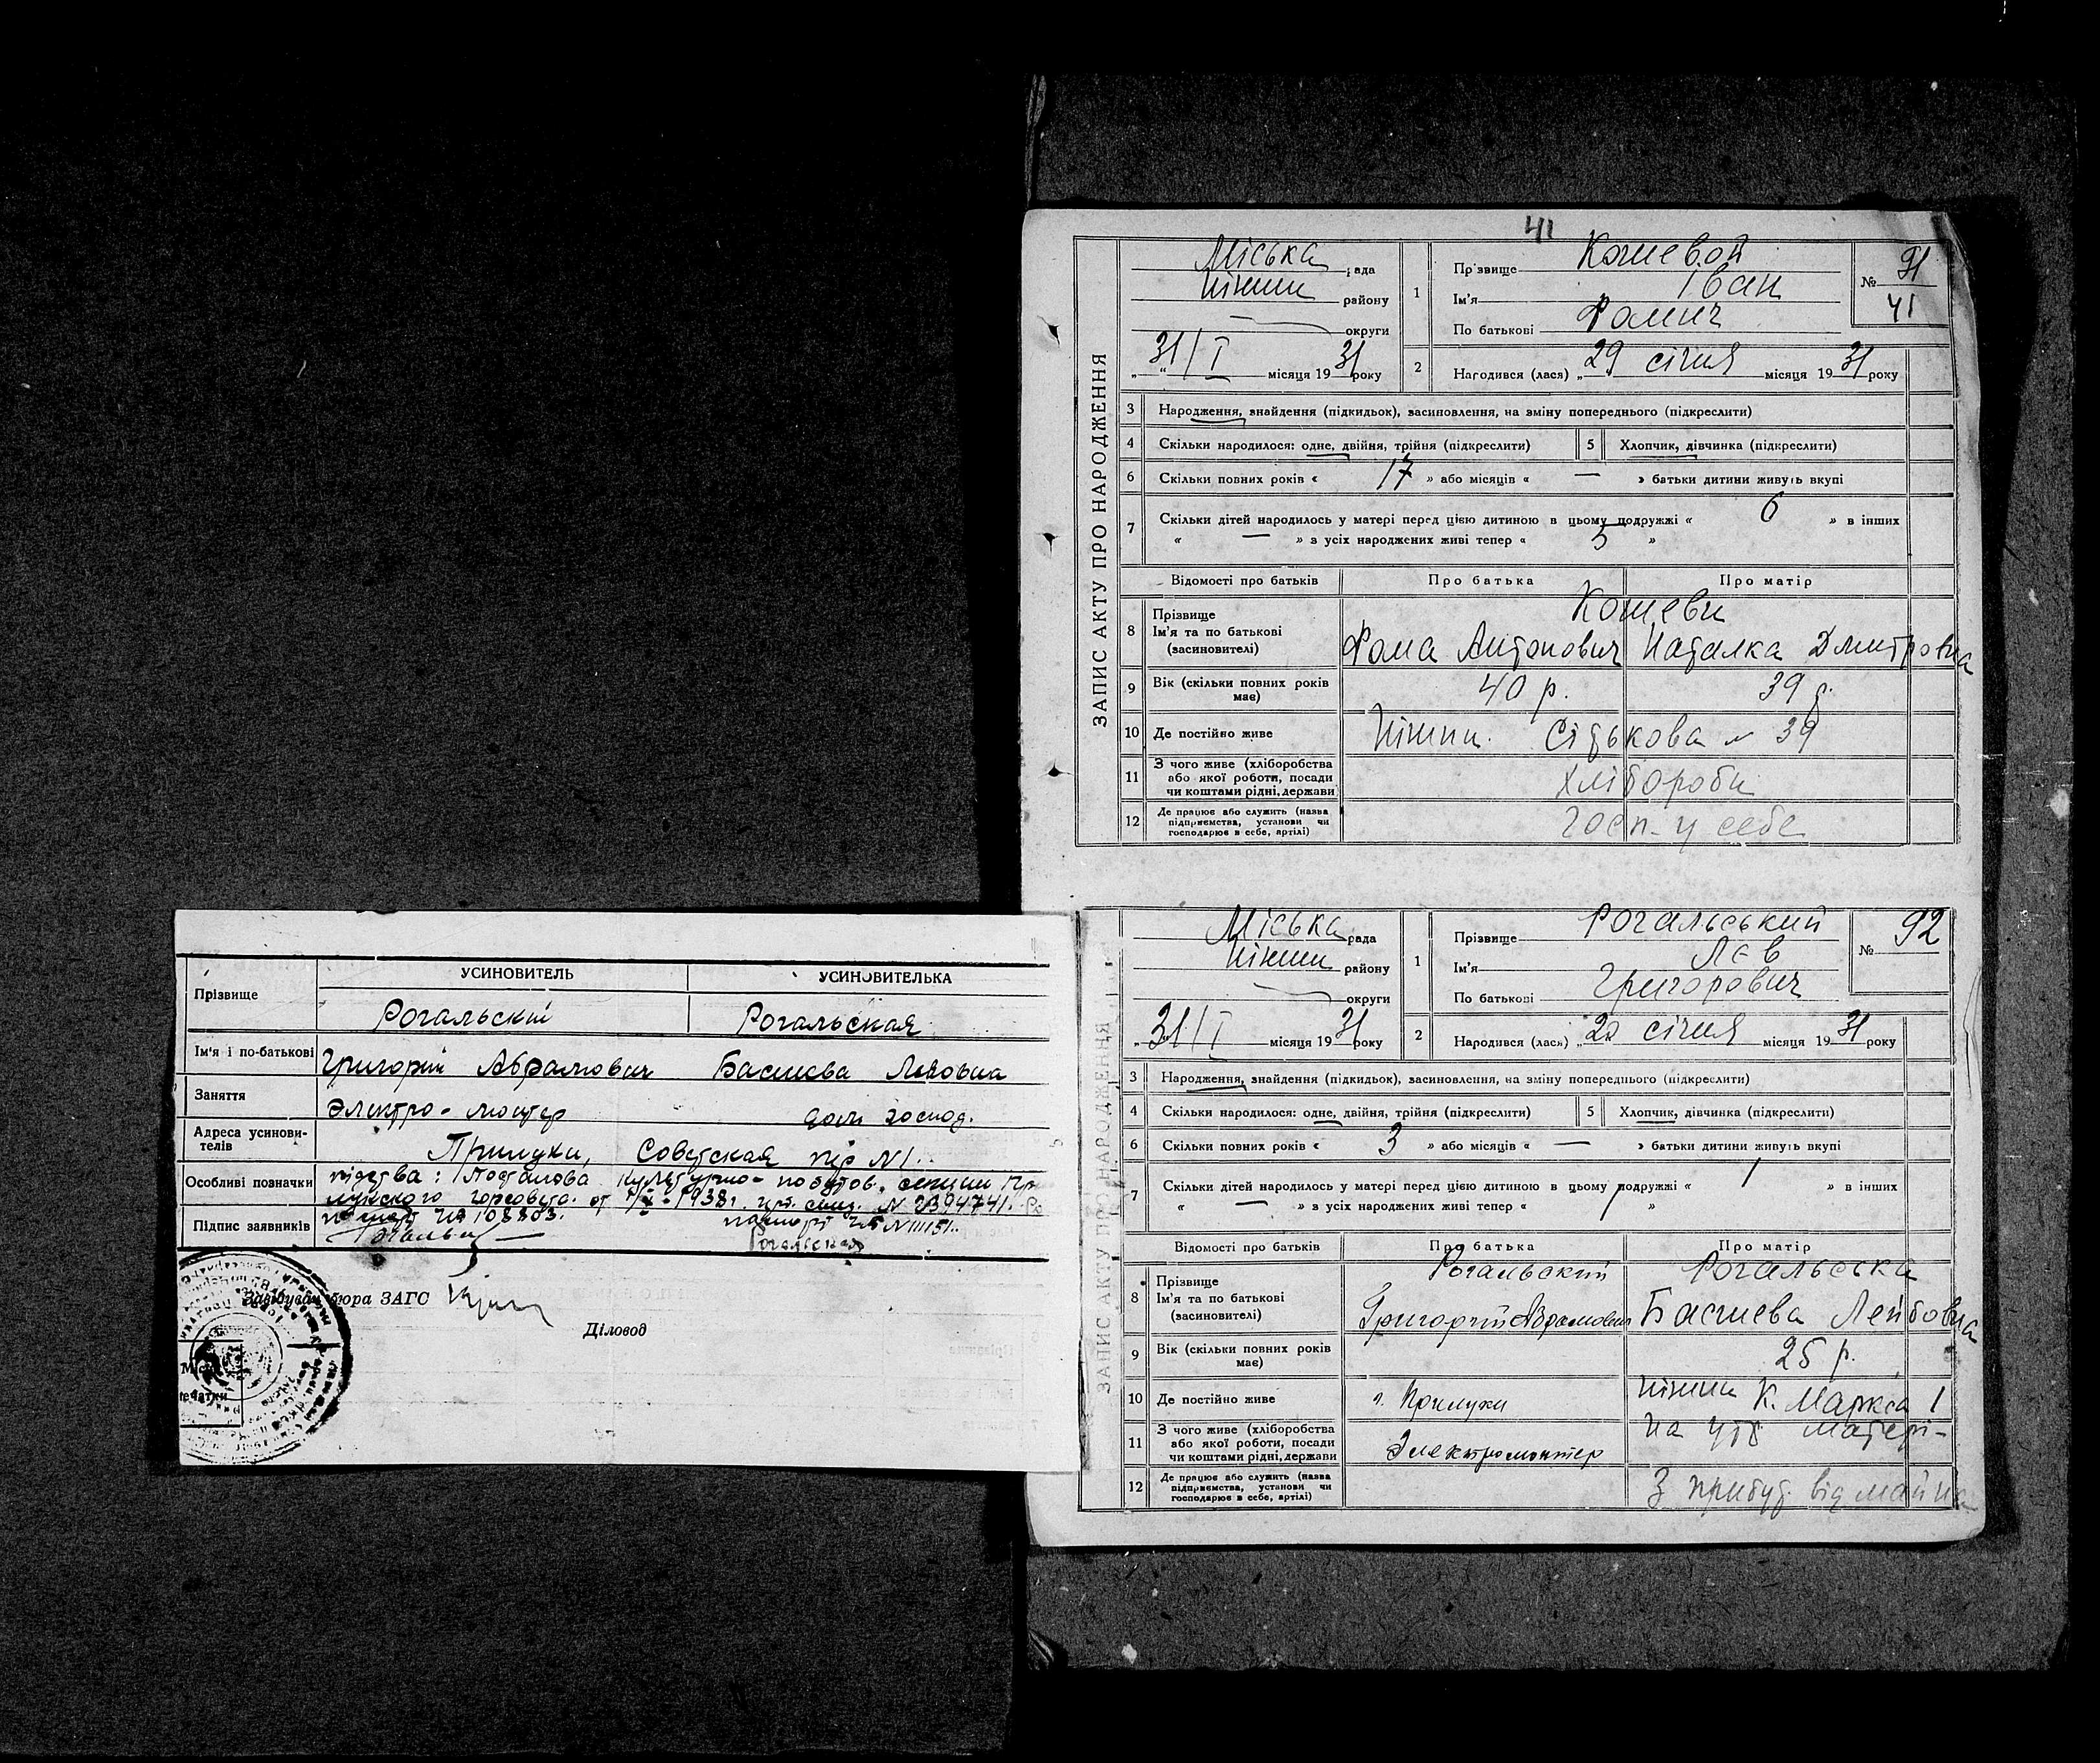 41
ЗАПИС АКТУ ПРО НАРОДЖЕННЯ
Міська рада
Ніжин району
округи
„31/I“ місяця 1931 року
1
Прізвище Кошевой
Ім'я Іван
По батькові Фомич
№ 91
41
2
Народився (лася) „29 січня місяця 1931 року
3 Народження, знайдення (підкидьок), засиновлення, на зміну попереднього (підкреслити)
4 Скільки народилося: одне, двійня, трійня (підкреслити)
5 Хлопчик, дівчинка (підкреслити)
6 Скільки повних років « 17 » або місяців « — » батьки дитини живуть вкупі
7 Скільки дітей народилось у матері перед цією дитиною в цьому подружжі « 6 » в інших
« — » з усіх народжених живі тепер « 5 »
Відомості про батьків Про батька Про матір
8 Прізвище
Ім'я та по батькові
(засиновителі)
Кошеви
Фома Антонович Наталка Дмитровна
9 Вік (скільки повних років має) 40 р. 39 р.
10 Де постійно живе Ніжин. Сітькова № 39
11 З чого живе (хліборобства
або якої роботи, посади
чи коштами рідні, держави
хлібороби
12 Де працює або служить (назва
підприємства, установи чи
господарює в себе, артілі)
госп. у себе
ЗАПИС АКТУ ПРО НАРОДЖЕННЯ
Міська рада
Ніжин району
округи
„31/I місяця 1931 року
1
Прізвище Рогальський
Ім'я Лєв
По батькові Григорович
№ 92
2
Народився (лася) „20 січня місяця 1931 року
3 Народження, знайдення (підкидьок), засиновлення, на зміну попереднього (підкреслити)
4 Скільки народилося: одне, двійня, трійня (підкреслити)
5 Хлопчик, дівчинка (підкреслити)
6 Скільки повних років « 3 » або місяців « — » батьки дитини живуть вкупі
7 Скільки дітей народилось у матері перед цією дитиною в цьому подружжі « 1 » в інших
« — » з усіх народжених живі тепер « 1 »
Відомості про батьків Про батька Про матір
8 Прізвище
Ім'я та по батькові
(засиновителі)
Рогальский Рогальська
Григорій Абрамович Басшева Лейбовна
9 Вік (скільки повних років має) 25 р.
10 Де постійно живе г. Прилуки Ніжин К. Маркса 1
11 З чого живе (хліборобства
або якої роботи, посади
чи коштами рідні, держави
Электромонтер на утр матері-
12 Де працює або служить (назва
підприємства, установи чи
господарює в себе, артілі)
З прибут. від майна
УСИНОВИТЕЛЬ УСИНОВИТЕЛЬКА
Прізвище Рогальский Рогальская
Ім'я і по-батькові Григорий Абрамович Басшева Лейбовна
Заняття Электро-монтер дом господ.
Адреса усинови-
телів
Прилуки, Советская пер N1.
Особливі позначки підства: Постанова культурно-побутов. секции При
лукского горсовета от 1938г. N 2394741.
Підпис заявників
108803.
паспорт N 111151.
Рогальская
Завідувач бюра ЗАГС
Діловод
Місце
печатки